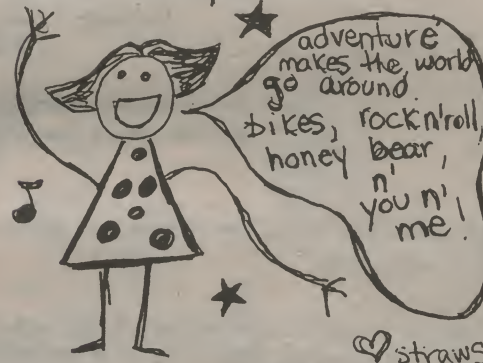 adventure
makes the world
go around.
bikes, rock n'roll,
honey bear,
n'
you n'
me!
straws